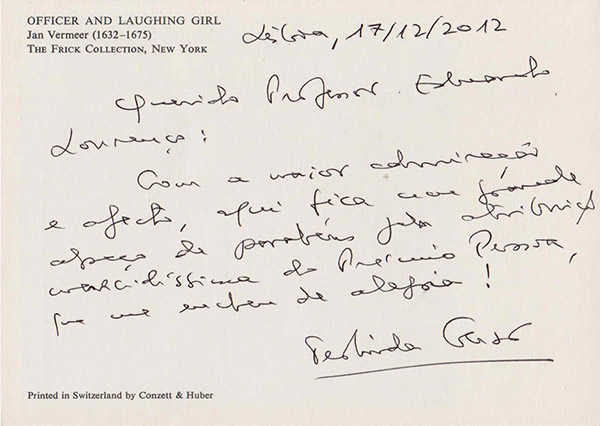 OFFICER AND LAUGHING GIRL
Jan Vermeer (1632–1675)
THE FRICK COLLECTION, NEW YORK
Lisboa, 17/12/2012
Querido Professor Eduardo
Lourenço:
Com a maior admiração
e afecto, aqui fica um grande
abraço de parabéns pela atribuição
merecidíssima do Prémio Pessoa,
que me encheu de alegria!
Printed in Switzerland by Conzett & Huber